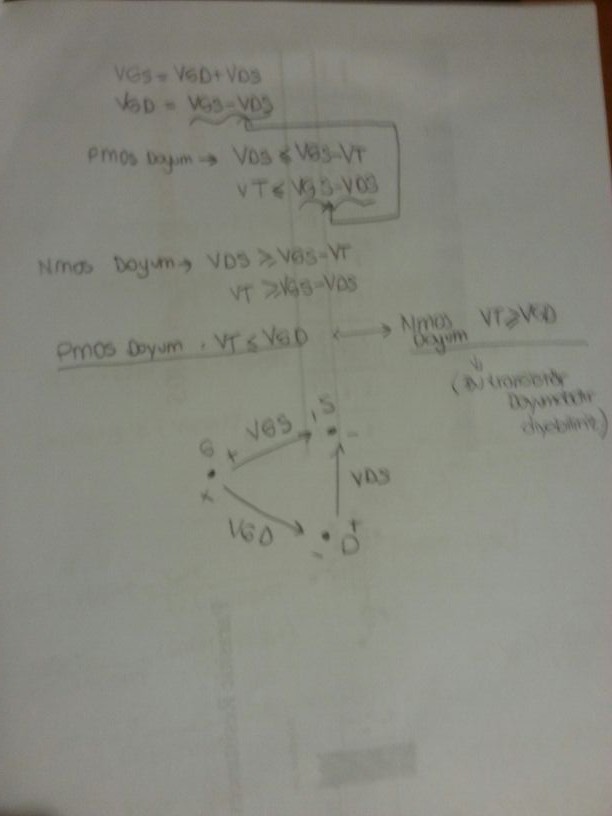 VGS = VGD + VDS
VGD = VGS - VDS
Pmos Doyum → VDS ≤ VGS - VT
VT ≤ VGS - VDS
Nmos Doyum → VDS ≥ VGS - VT
VT ≥ VGS - VDS
Pmos Doyum . VT ≤ VGD ↔ Nmos Doyum VT ≥ VGD
↓
transistör
Doyumdadır
diyebiliriz)
S
G + VGS -
+
VDS
VGD
- D +